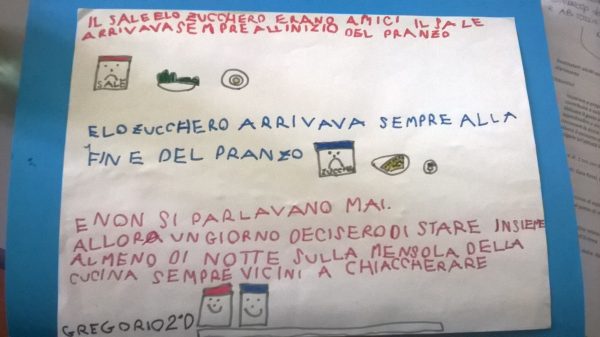 IL SALE ELO ZUCCHERO ERANO AMICI IL SALE
ARRIVAVA SEMPRE ALL'INIZIO DEL PRANZO
SALE
ELO ZUCCHERO ARRIVAVA SEMPRE ALLA
FINE DEL PRANZO
ZUCCHE
E NON SI PARLAVANO MAI.
ALLORA UN GIORNO DECISERO DI STARE INSIEME
ALMENO DI NOTTE SULLA MENSOLA DELLA
CUCINA SEMPRE VICINI A CHIACCHERARE
GREGORIO 2°D